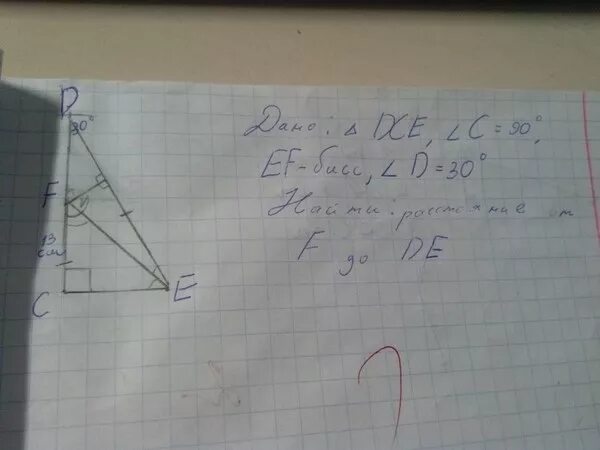 D
30°
F
13
см
C
E
Дано: △ DCE, ∠C = 90°,
EF-бисс, ∠D = 30°
Найти: расстояние от
F до DE